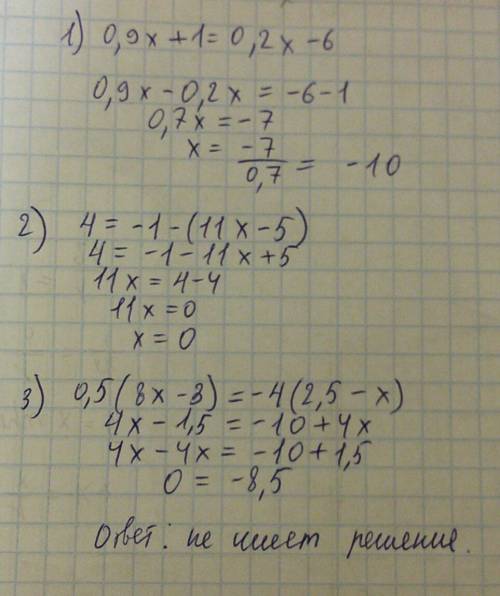 1) 0,9x + 1 = 0,2x - 6
0,9x - 0,2x = -6 - 1
0,7x = -7
x = -7/0,7 = -10
2) 4 = -1 - (11x - 5)
4 = -1 - 11x + 5
11x = 4 - 4
11x = 0
x = 0
3) 0,5(8x - 3) = -4(2,5 - x)
4x - 1,5 = -10 + 4x
4x - 4x = -10 + 1,5
0 = -8,5
Ответ: не имеет решение.